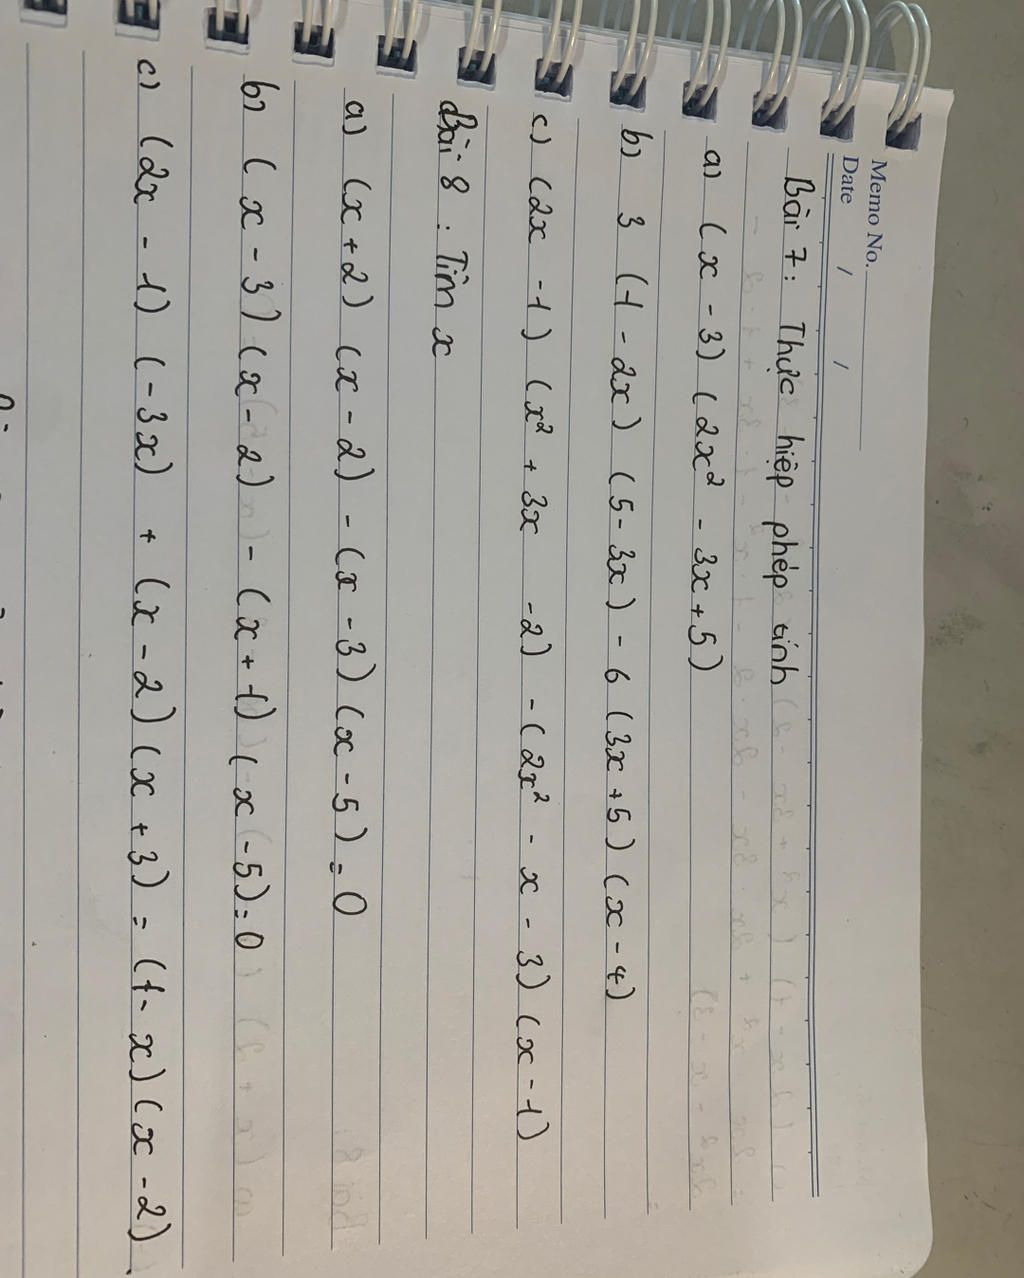 Memo No.
Date / /
Bài 7: Thực hiệp phép tính
a) (x - 3) (2x² - 3x + 5)
b) 3 (1 - 2x) (5 - 3x) - 6 (3x + 5) (x - 4)
c) (2x - 1) (x² + 3x - 2) - (2x² - x - 3) (x - 1)
Bài 8 : Tìm x
a) (x + 2) (x - 2) - (x - 3) (x - 5) = 0
b) (x - 3) (x - 2) - (x + 1) (x - 5) = 0
c) (2x - 1) (-3x) + (x - 2) (x + 3) = (1 - x) (x - 2)